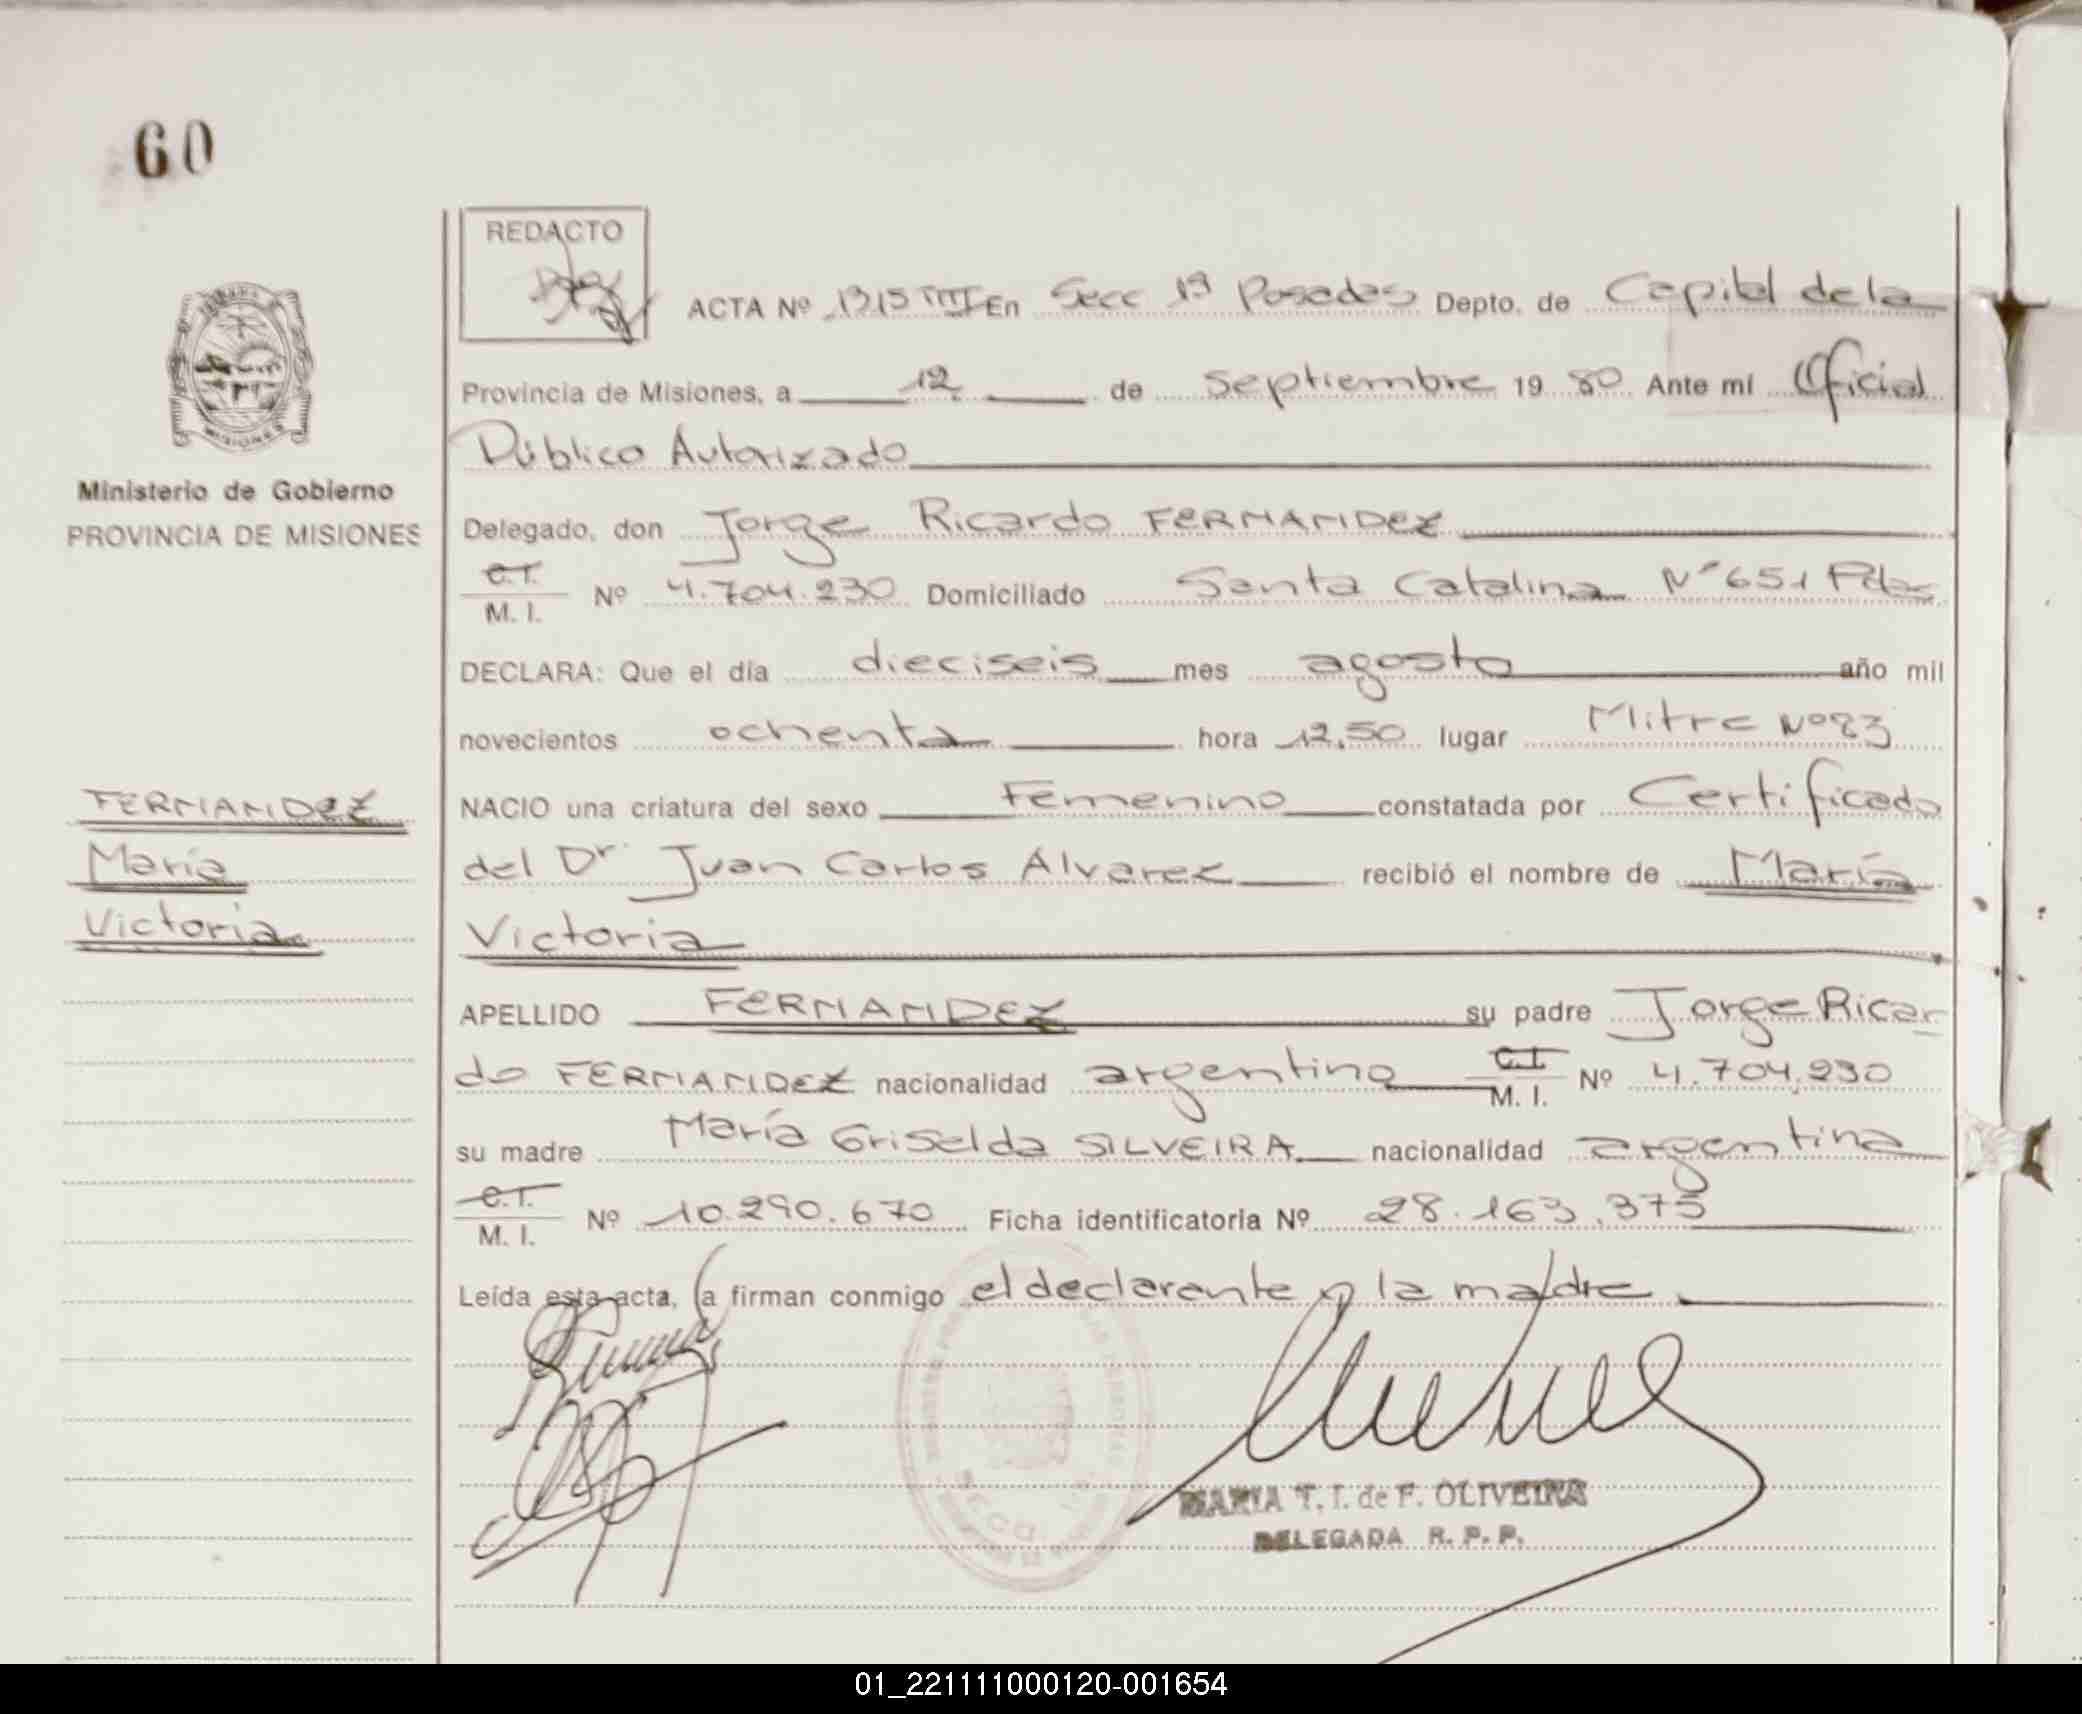 60
REDACTO
ACTA Nº 1315 TIII En Secc 1ª Posadas Depto. de Capital de la
Provincia de Misiones, a 12 de Septiembre 19 80 Ante mí Oficial
Público Autorizado
Ministerio de Gobierno
PROVINCIA DE MISIONES
Delegado, don Jorge Ricardo FERNANDEZ
C.I.
M. I. Nº 4.704.230 Domiciliado Santa Catalina Nº 651 Pdas
DECLARA: Que el día dieciseis mes agosto año mil
novecientos ochenta hora 12,50 lugar Mitre Nº 23
FERNANDEZ
María
Victoria
NACIO una criatura del sexo Femenino constatada por Certificado
del Dr. Juan Carlos Alvarez recibió el nombre de María
Victoria
APELLIDO FERNANDEZ su padre Jorge Ricar
do FERNANDEZ nacionalidad argentino C.I.
M. I. Nº 4.704.230
su madre María Griselda SILVEIRA nacionalidad argentina
C.I.
M. I. Nº 10.290.670 Ficha identificatoria Nº 28.163.375
Leída esta acta, la firman conmigo el declarante y la madre
MARIA T. I. de F. OLIVEIRA
DELEGADA R. P. P.
01_221111000120-001654